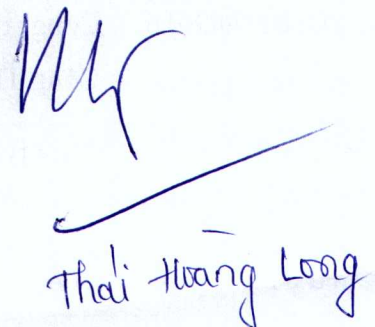 Thái Hoàng Long